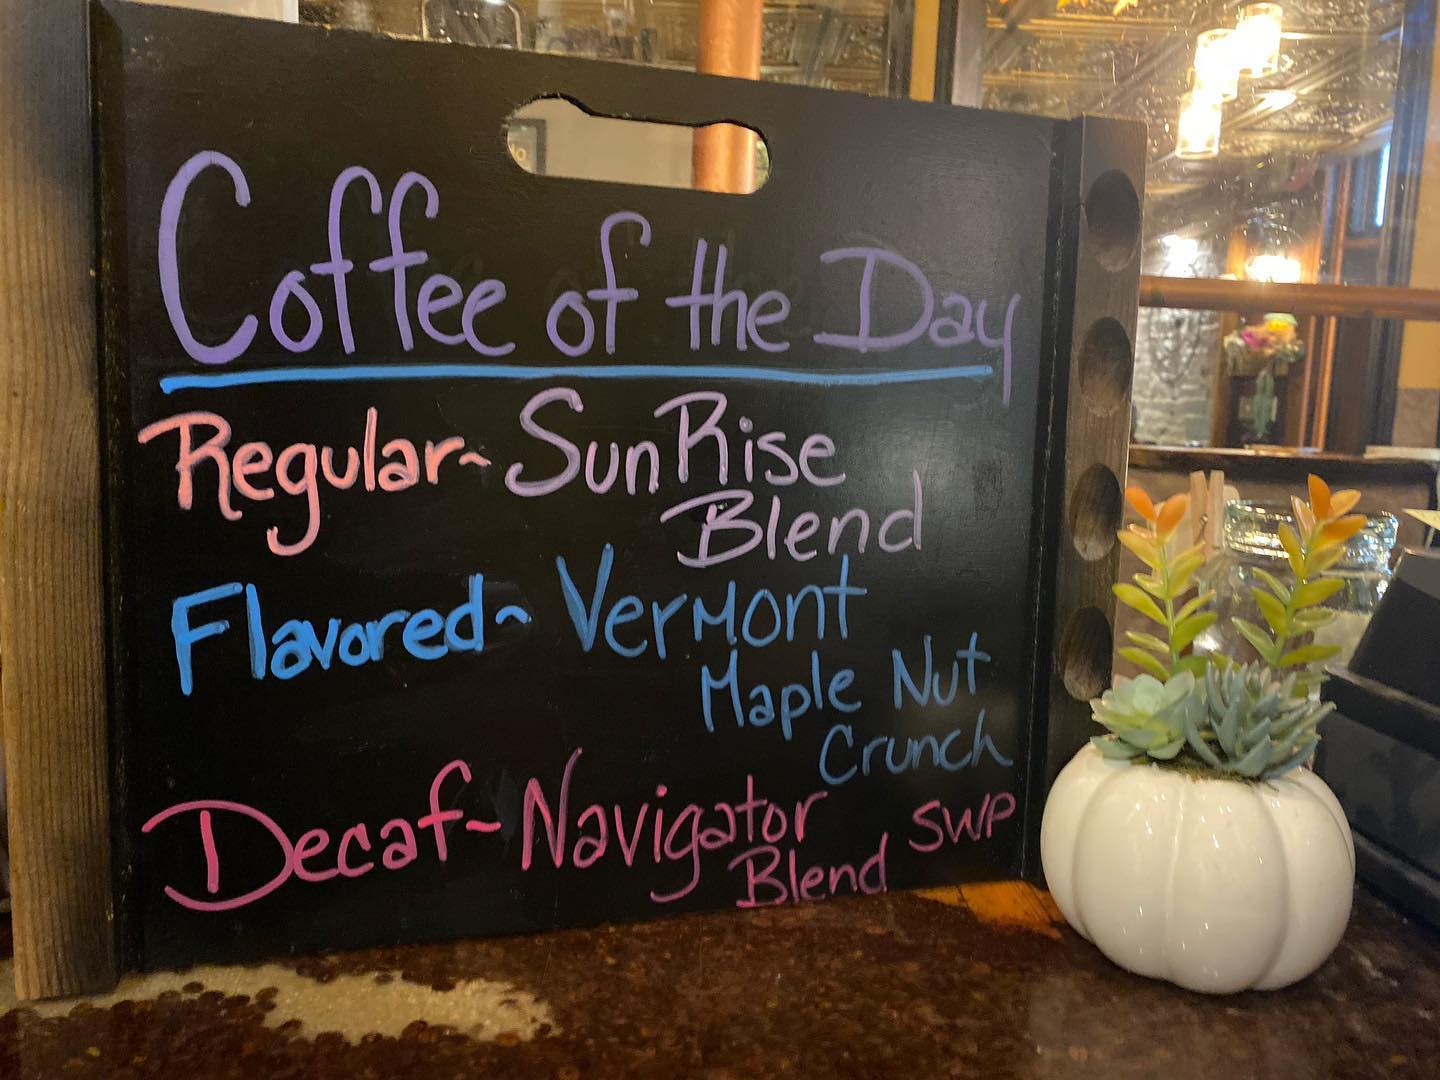 Coffee of the Day
Regular~ SunRise
Blend
Flavored~ Vermont
Maple Nut
Crunch
Decaf~ Navigator SWP
Blend